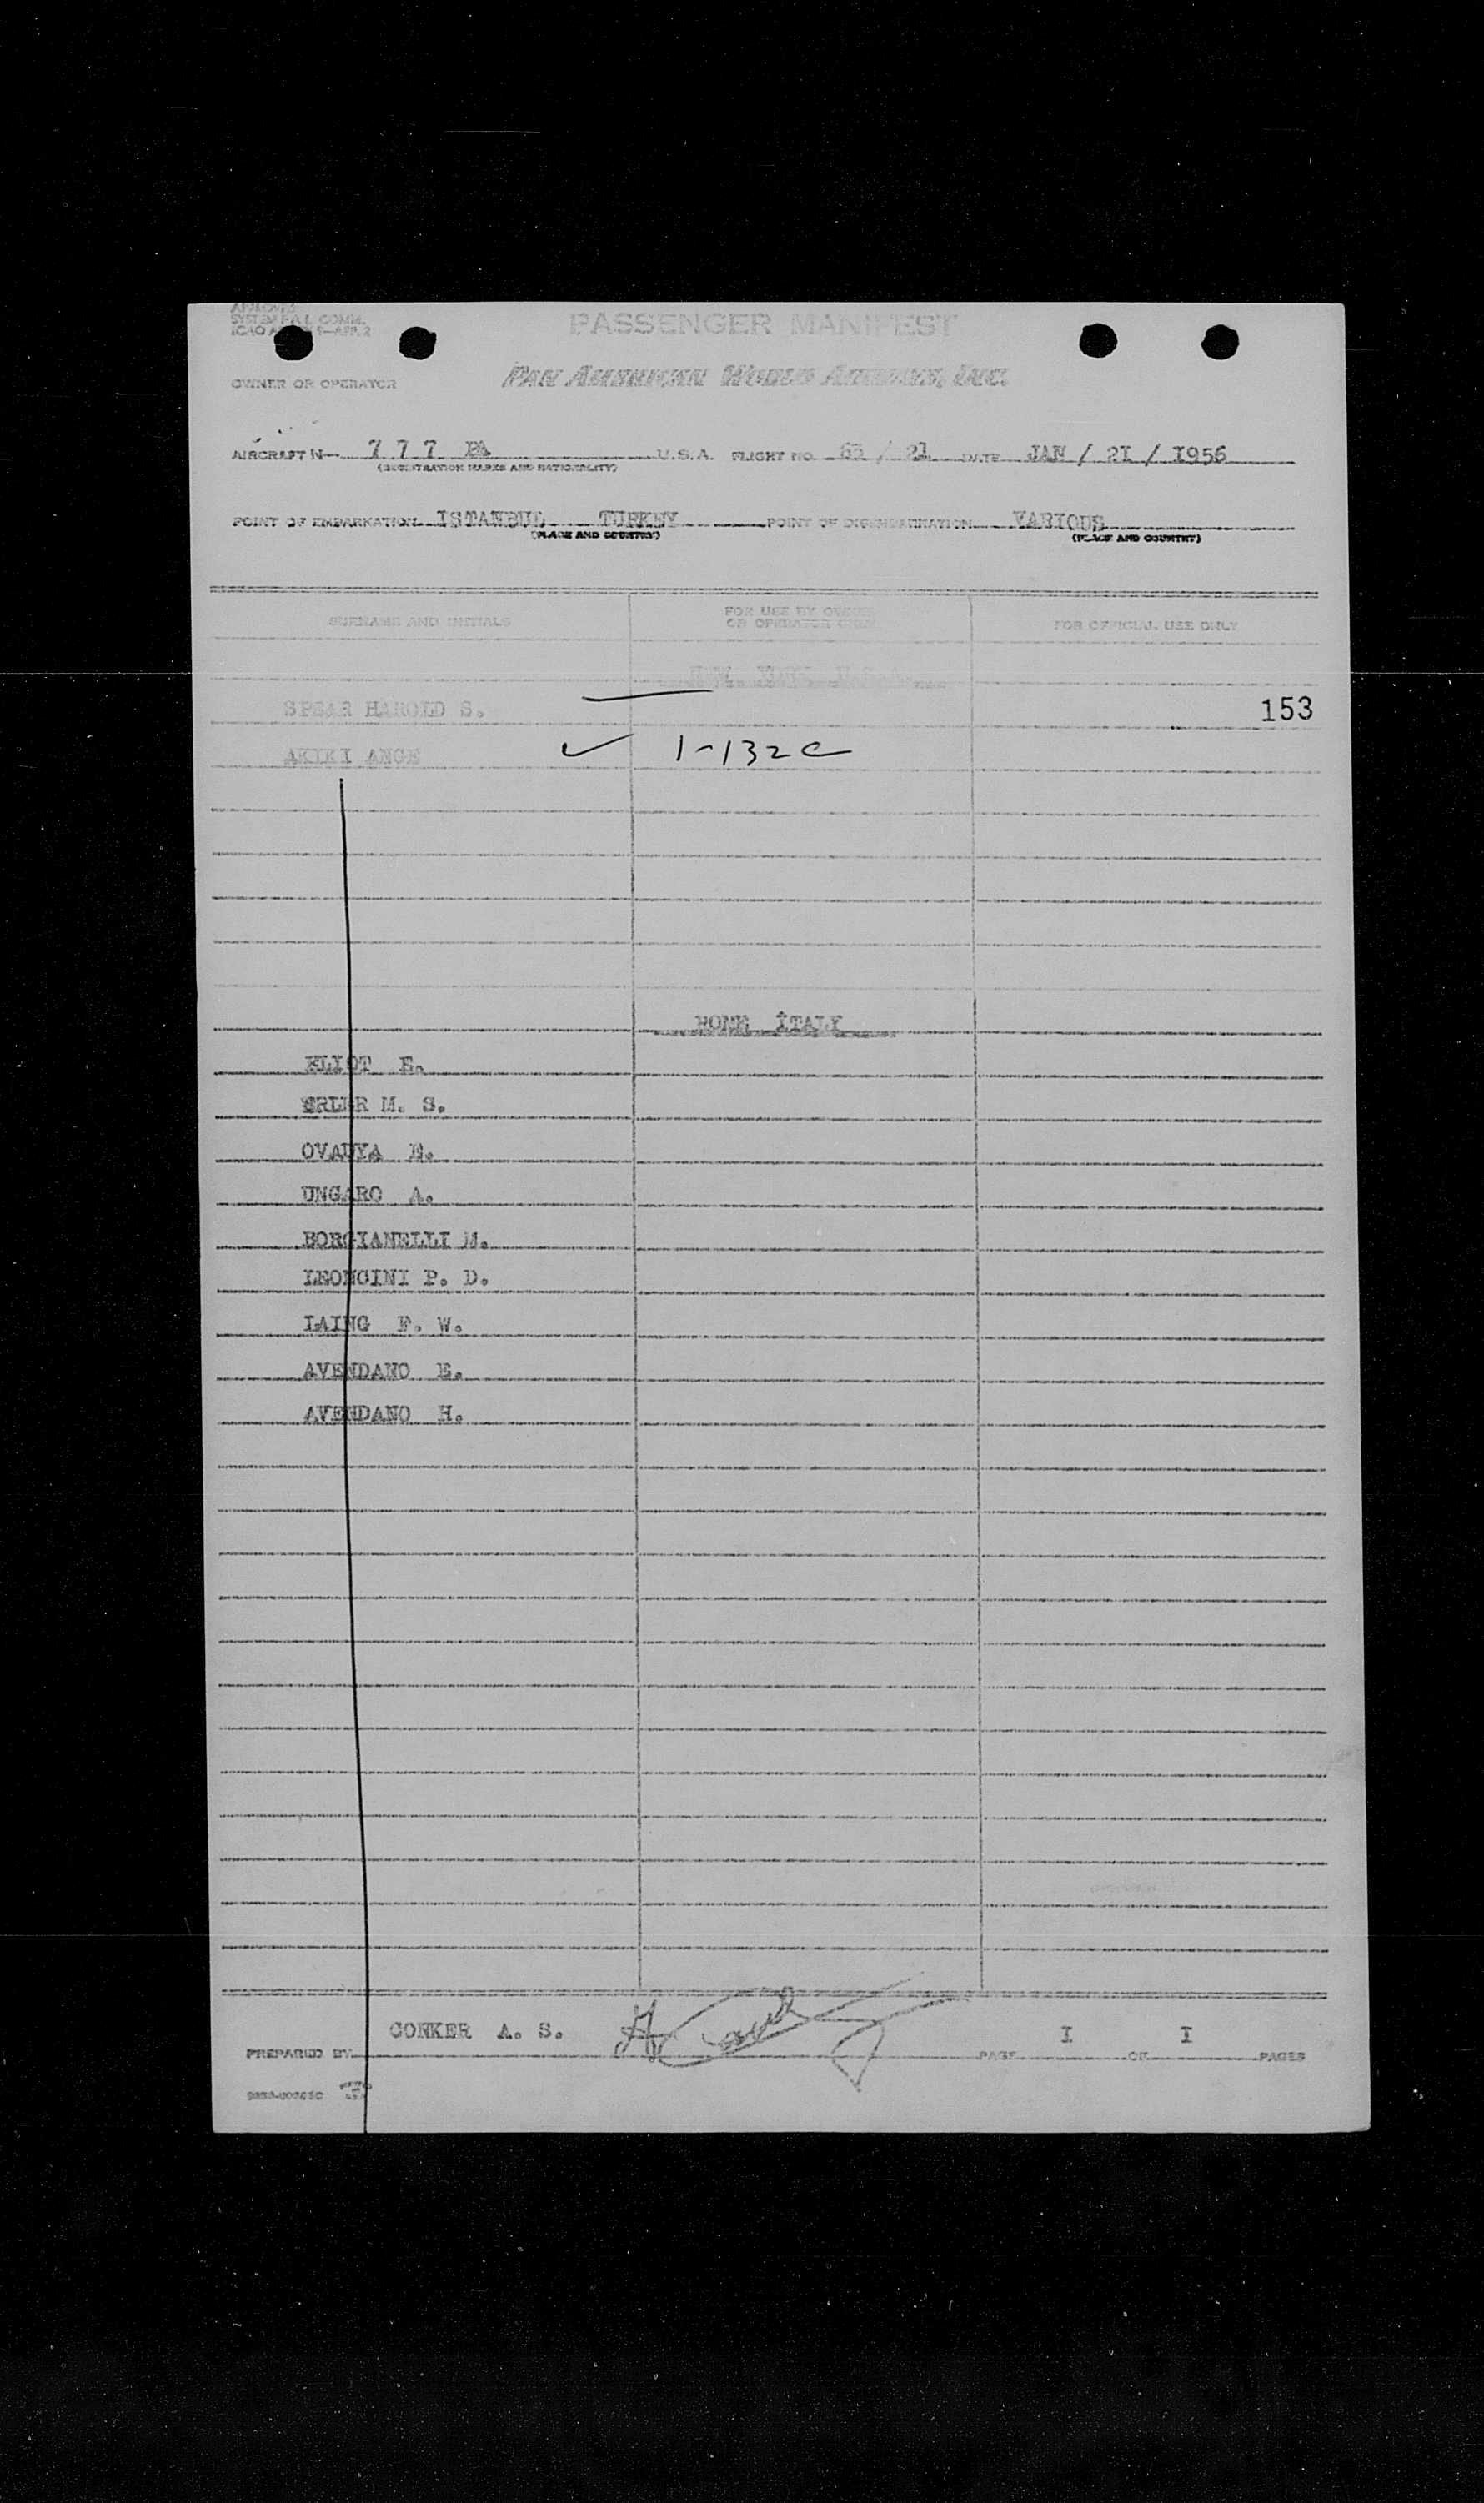 APPROVED
SYSTEM F.A.L. COMM.
ICAO ANNEX 9—APP. 2
PASSENGER MANIFEST
OWNER OR OPERATOR PAN AMERICAN WORLD AIRWAYS, INC.
AIRCRAFT N— 7 7 7 PA U.S.A. FLIGHT NO. 63 / 21 DATE JAN / 2I / I956
(REGISTRATION MARKS AND NATIONALITY)
POINT OF EMBARKATION ISTANBUL TURKEY POINT OF DISEMBARKATION VARIOUS
(PLACE AND COUNTRY) (PLACE AND COUNTRY)
SURNAME AND INITIALS FOR USE BY OWNER OR OPERATOR ONLY FOR OFFICIAL USE ONLY
SPEAR HAROLD S. 153
AKIKI ANGE ✓ 1-132c
ROME ITALY
ELIOT E.
ERLER M. S.
OVADYA E.
UNGARO A.
BORGIANELLI M.
LEONCINI P. D.
LAING F. W.
AVENDANO E.
AVENDANO H.
PREPARED BY CONKER A. S. PAGE I OF I PAGES